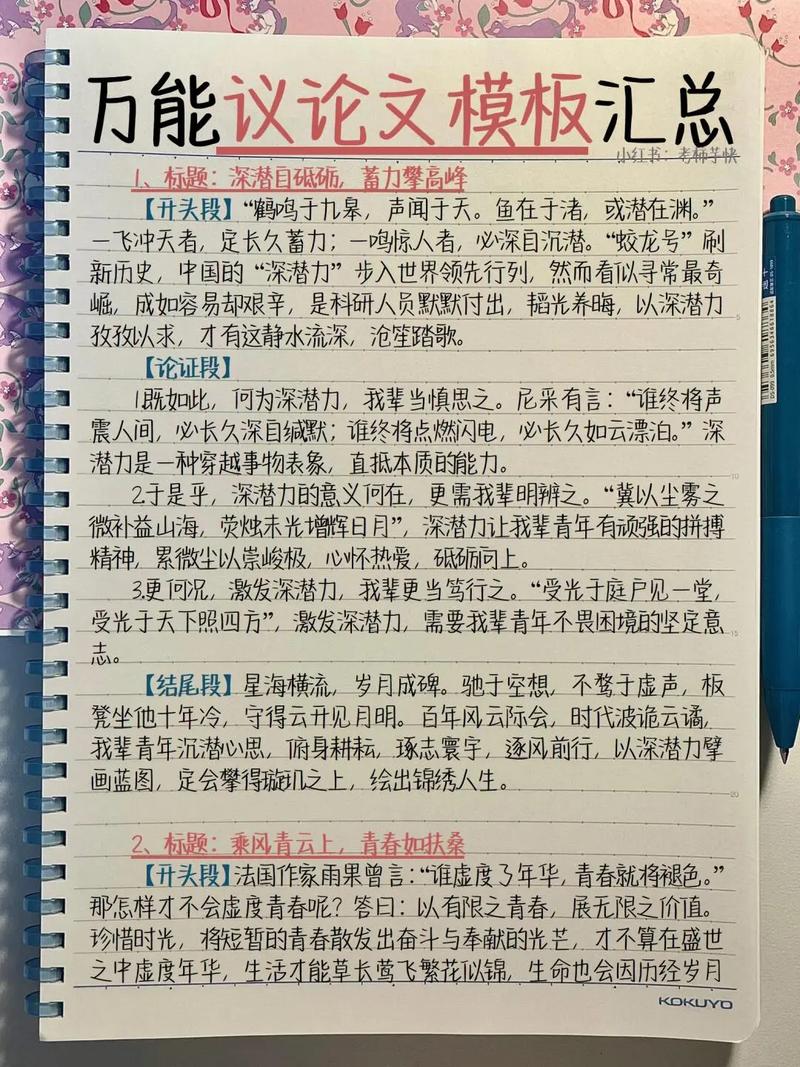 万能议论文模板汇总
1、标题：深潜自砥砺，蓄力攀高峰
【开头段】“鹤鸣于九皋，声闻于天。鱼在于渚，或潜在渊。”
一飞冲天者，定长久蓄力；一鸣惊人者，必深自沉潜。“蛟龙号”刷
新历史，中国的“深潜力”步入世界领先行列，然而看似寻常最奇
崛，成如容易却艰辛，是科研人员默默付出，韬光养晦，以深潜力
孜孜以求，才有这静水流深，沧笙踏歌。
【论证段】
1.既如此，何为深潜力，我辈当慎思之。尼采有言：“谁终将声
震人间，必长久深自缄默；谁终将点燃闪电，必长久如云漂泊。”深
潜力是一种穿越事物表象，直抵本质的能力。
2.于是乎，深潜力的意义何在，更需我辈明辨之。“冀以尘雾之
微补益山海，荧烛末光增辉日月”，深潜力让我辈青年有顽强的拼搏
精神，累微尘以崇峻极，心怀热爱，砥砺向上。
3.更何况，激发深潜力，我辈更当笃行之。“受光于庭户见一堂，
受光于天下照四方”，激发深潜力，需要我辈青年不畏困境的坚定意
志。
【结尾段】星海横流，岁月成碑。驰于空想，不骛于虚声，板
凳坐他十年冷，守得云开见月明。百年风云际会，时代波诡云谲，
我辈青年沉潜心思，俯身耕耘，琢志寰宇，逐风前行，以深潜力擘
画蓝图，定会攀得璇玑之上，绘出锦绣人生。
2、标题：乘风青云上，青春如扶桑
【开头段】法国作家雨果曾言：“谁虚度了年华，青春就将褪色。”
那怎样才不会虚度青春呢？答曰：以有限之青春，展无限之价值。
珍惜时光，将短暂的青春散发出奋斗与奉献的光芒，才不算在盛世
之中虚度年华，生活才能草长莺飞繁花似锦，生命也会因历经岁月
KOKUYO